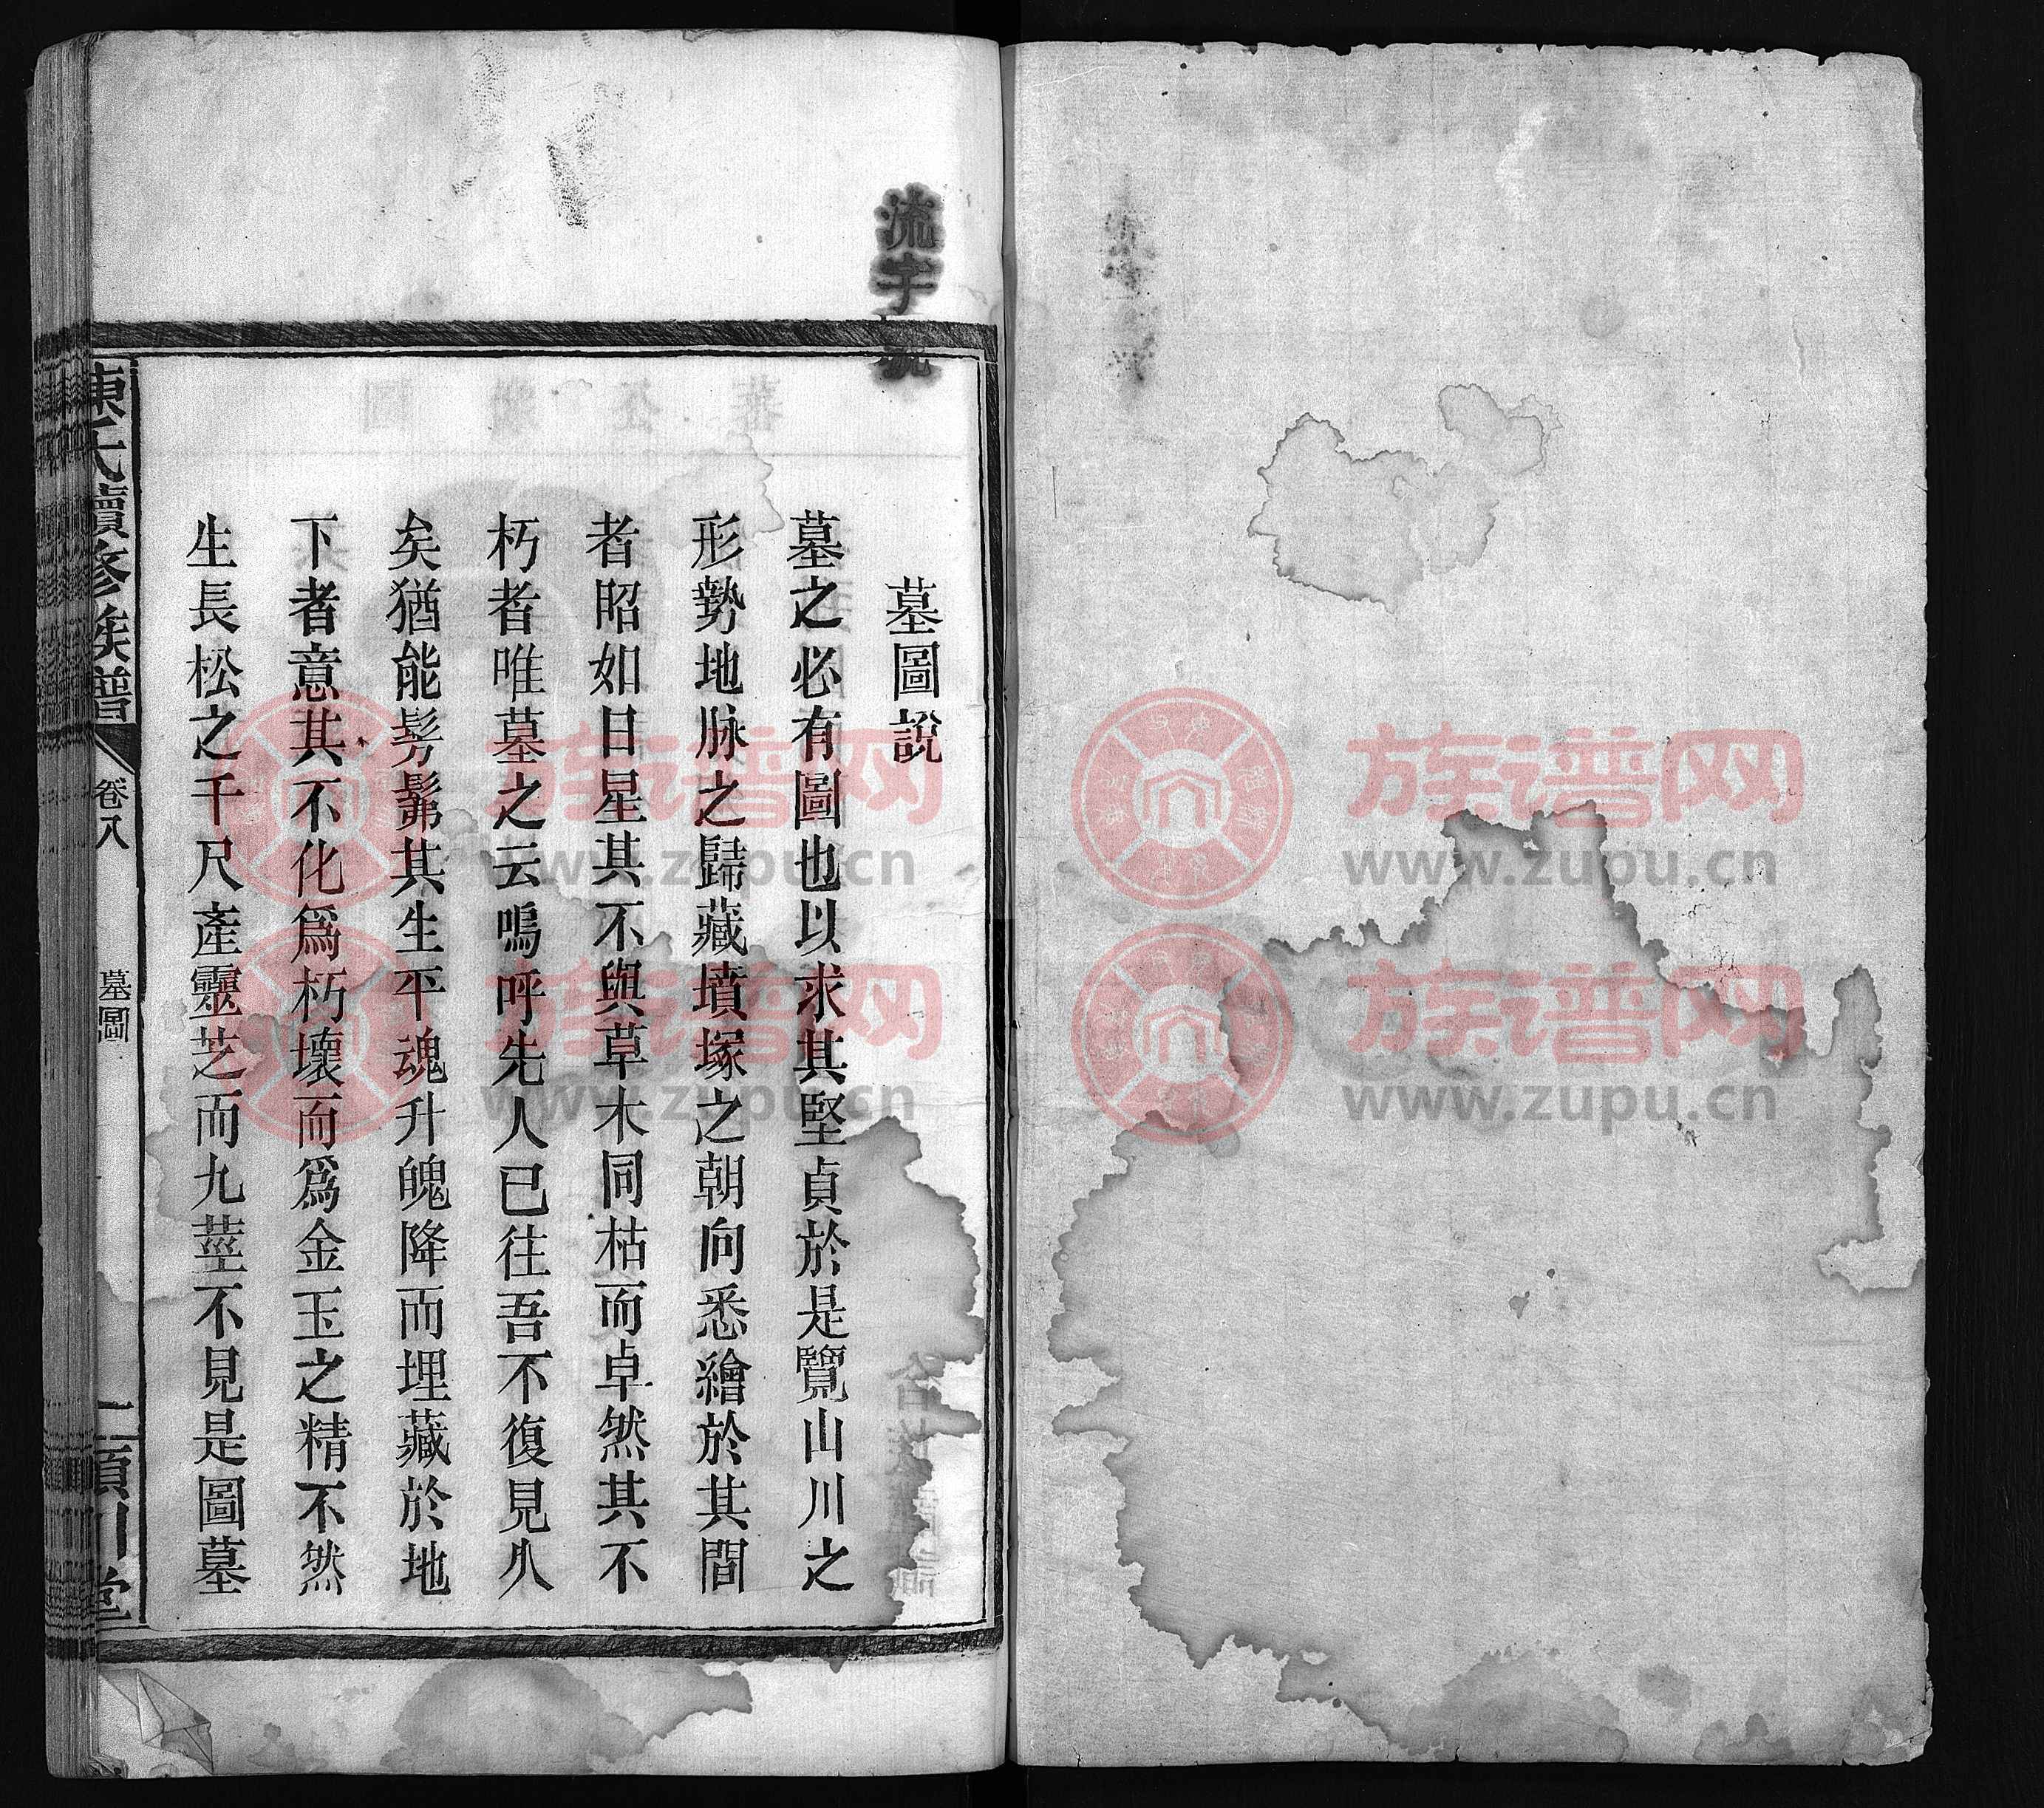 流字號
墓圖說
墓之必有圖也以求其堅貞於是覽山川之
形勢地脉之歸藏墳塚之朝向悉繪於其間
者昭如日星其不與草木同枯而卓然其不
朽者唯墓之云嗚呼先人已往吾不復見久
矣猶能髣髴其生平魂升魄降而埋藏於地
下者意其不化爲朽壞而爲金玉之精不然
生長松之千尺產靈芝而九莖不見是圖墓
陳氏續修族譜
卷八
墓圖
一
潁川堂
族谱网
www.zupu.cn
族谱网
www.zupu.cn
族谱网
www.zupu.cn
族谱网
www.zupu.cn